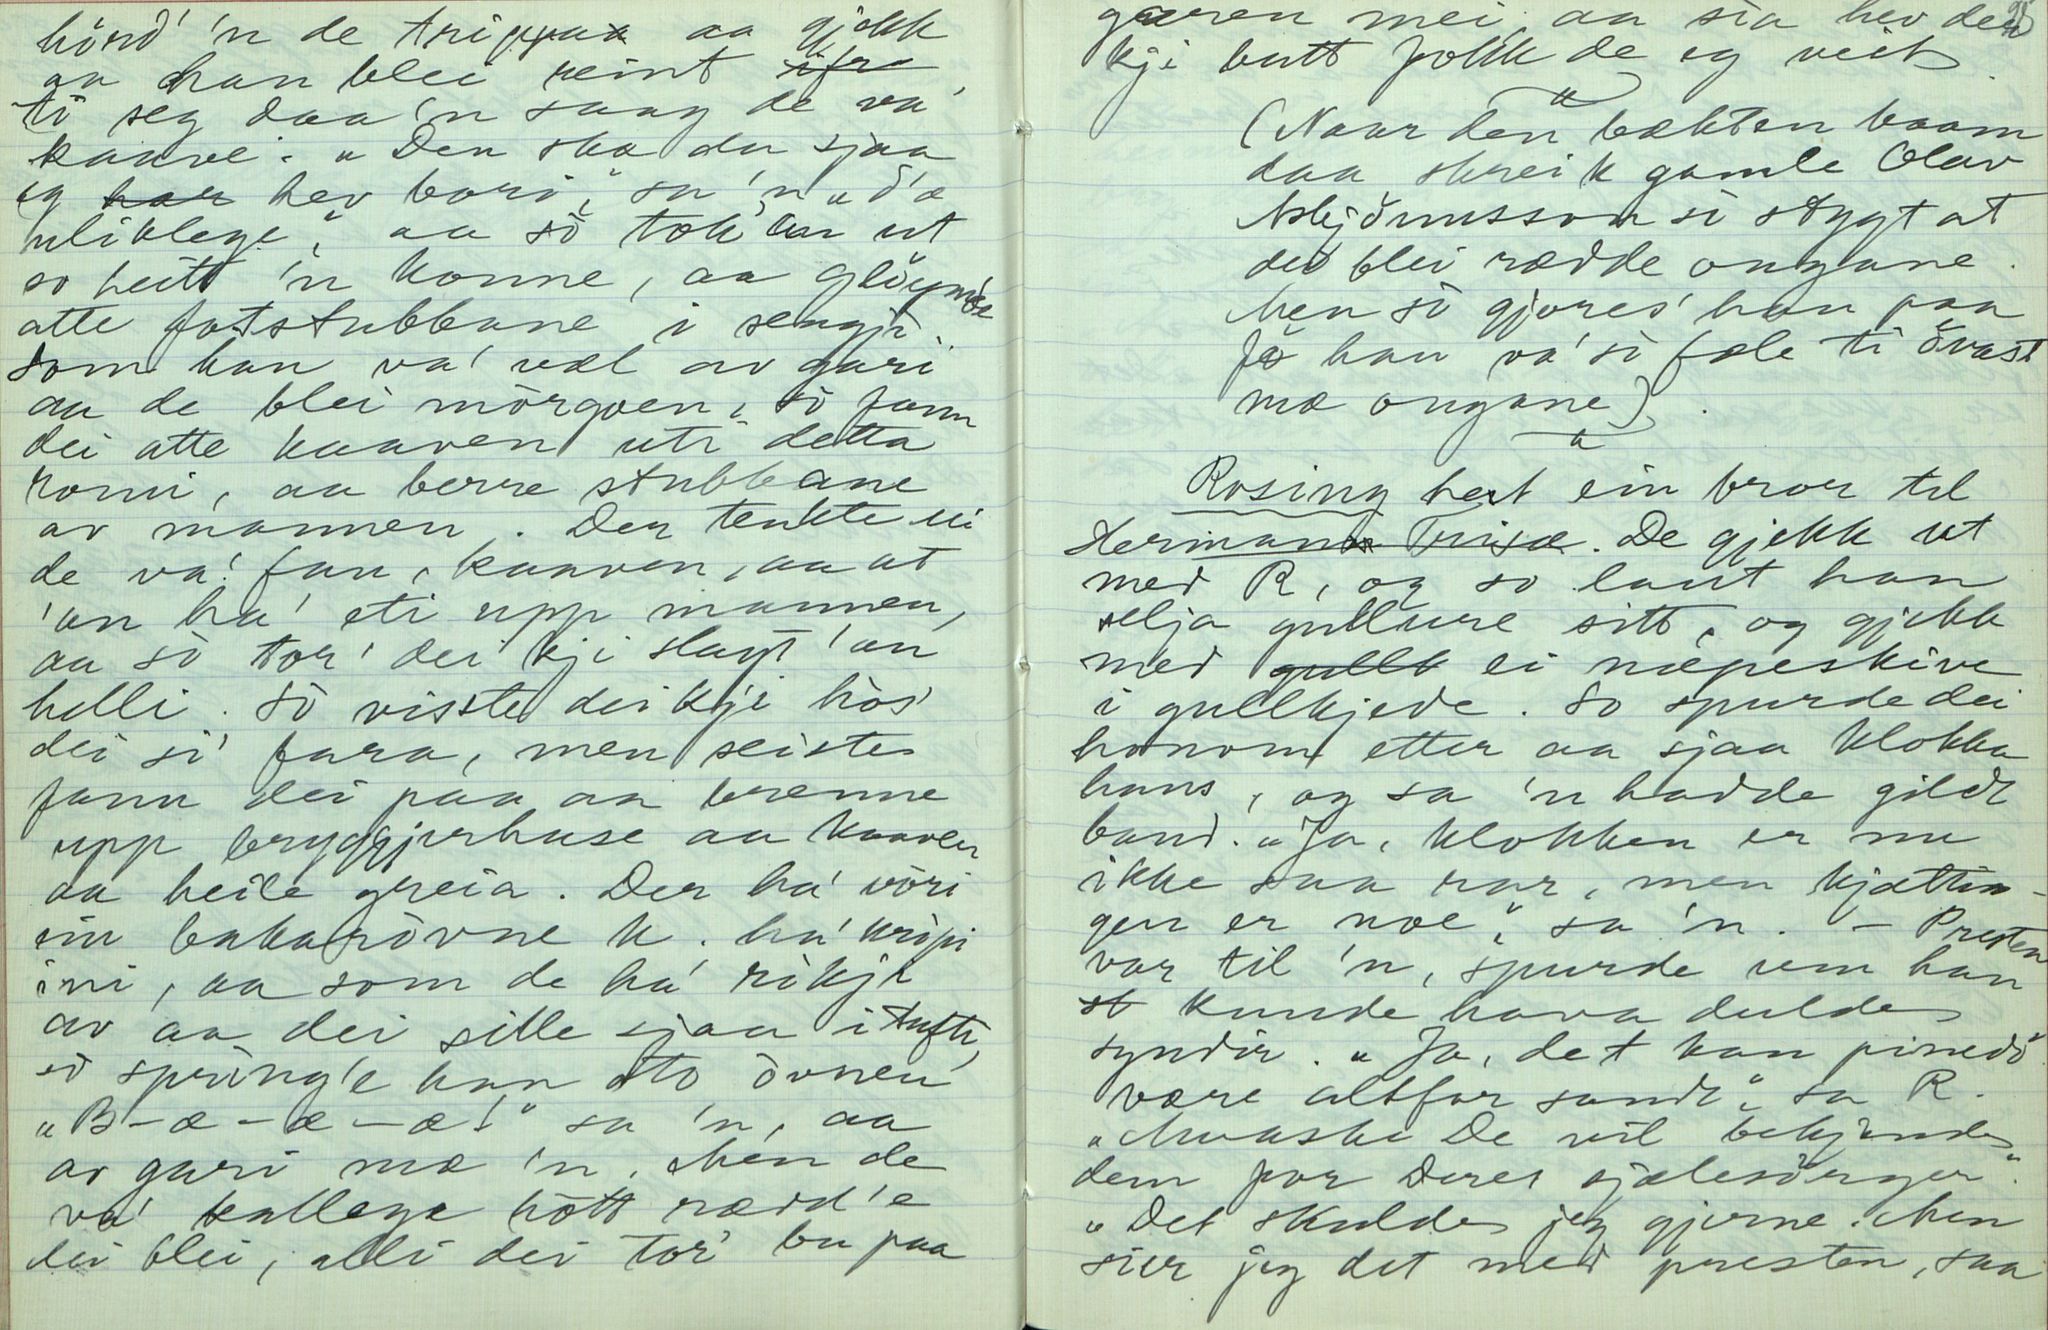 hörd' 'n de trippaa aa gjekk
aa han blei reint ifrå
ti seg daa 'n saag de va'
kaave. "Den ska du sjaa
eg har hev bori", sa 'n "d'æ
uliklege", aa sò tok 'an ut
so heitt 'n konne, aa glöymde
atte fotstubbane i sengji.
Som han va' væl av gari
aa de blei mòrgoen, sò fann
dei atte kaaven uti detta
romi, aa berre stubbane
av mannen. Der tenkte ei
de va' fan, kaaven, aa at
'an ha' eti upp mannen,
aa sò tor' dei kji slagt 'an
helli. Sò visste dei kji hòs'
dei si' fara, men seiste
fann dei paa aa brenne
upp bryggjerhuse aa kaaven
aa heile greia. Der ha' vòri
ein bakaròvne K. ha' kròpi
ini, aa som de ha' rikji
av aa dei sille sjaa i tufti,
sò spring'e han òto òvnen
"B-æ-æ-æ!" sa 'n, aa
av gari mæ 'n. Men de
va' kallega hött rædd'e
dei blei, alli dei tor' bu paa
garen mei, aa sia hev der
kji butt folkk de eg veit.
(Naar den bækten kaam
daa skreik gamle Olav
Asbjönnsson sì stygt at
dei blei rædde ongane.
Men sò gjores' han paa
Fö han va' sì fæle ti òvast
mæ ongane).
Rosing het ein bror til
Hermann Trisæ. De gjekk ut
med R, og so laut han
selja gullure sitt, og gjekk
med gullk ei næpeskive
i gullkjede. So spurde dei
honom etter aa sjaa klokka
hans, og sa 'n hadde gildt
band. "Ja, klokken er nu
ikke saa rar, men kjættin-
gen er noe", sa 'n. – Presten
var til 'n, spurde um han
st kunde hava dulde
syndir. "Ja, det kan pinedö
være altfor sandt", sa R.
"Maaske De vil bekjende
dem for Deres sjælesörger".
"Det skulde jeg gjerne. Men
sier jeg det med presten, saa